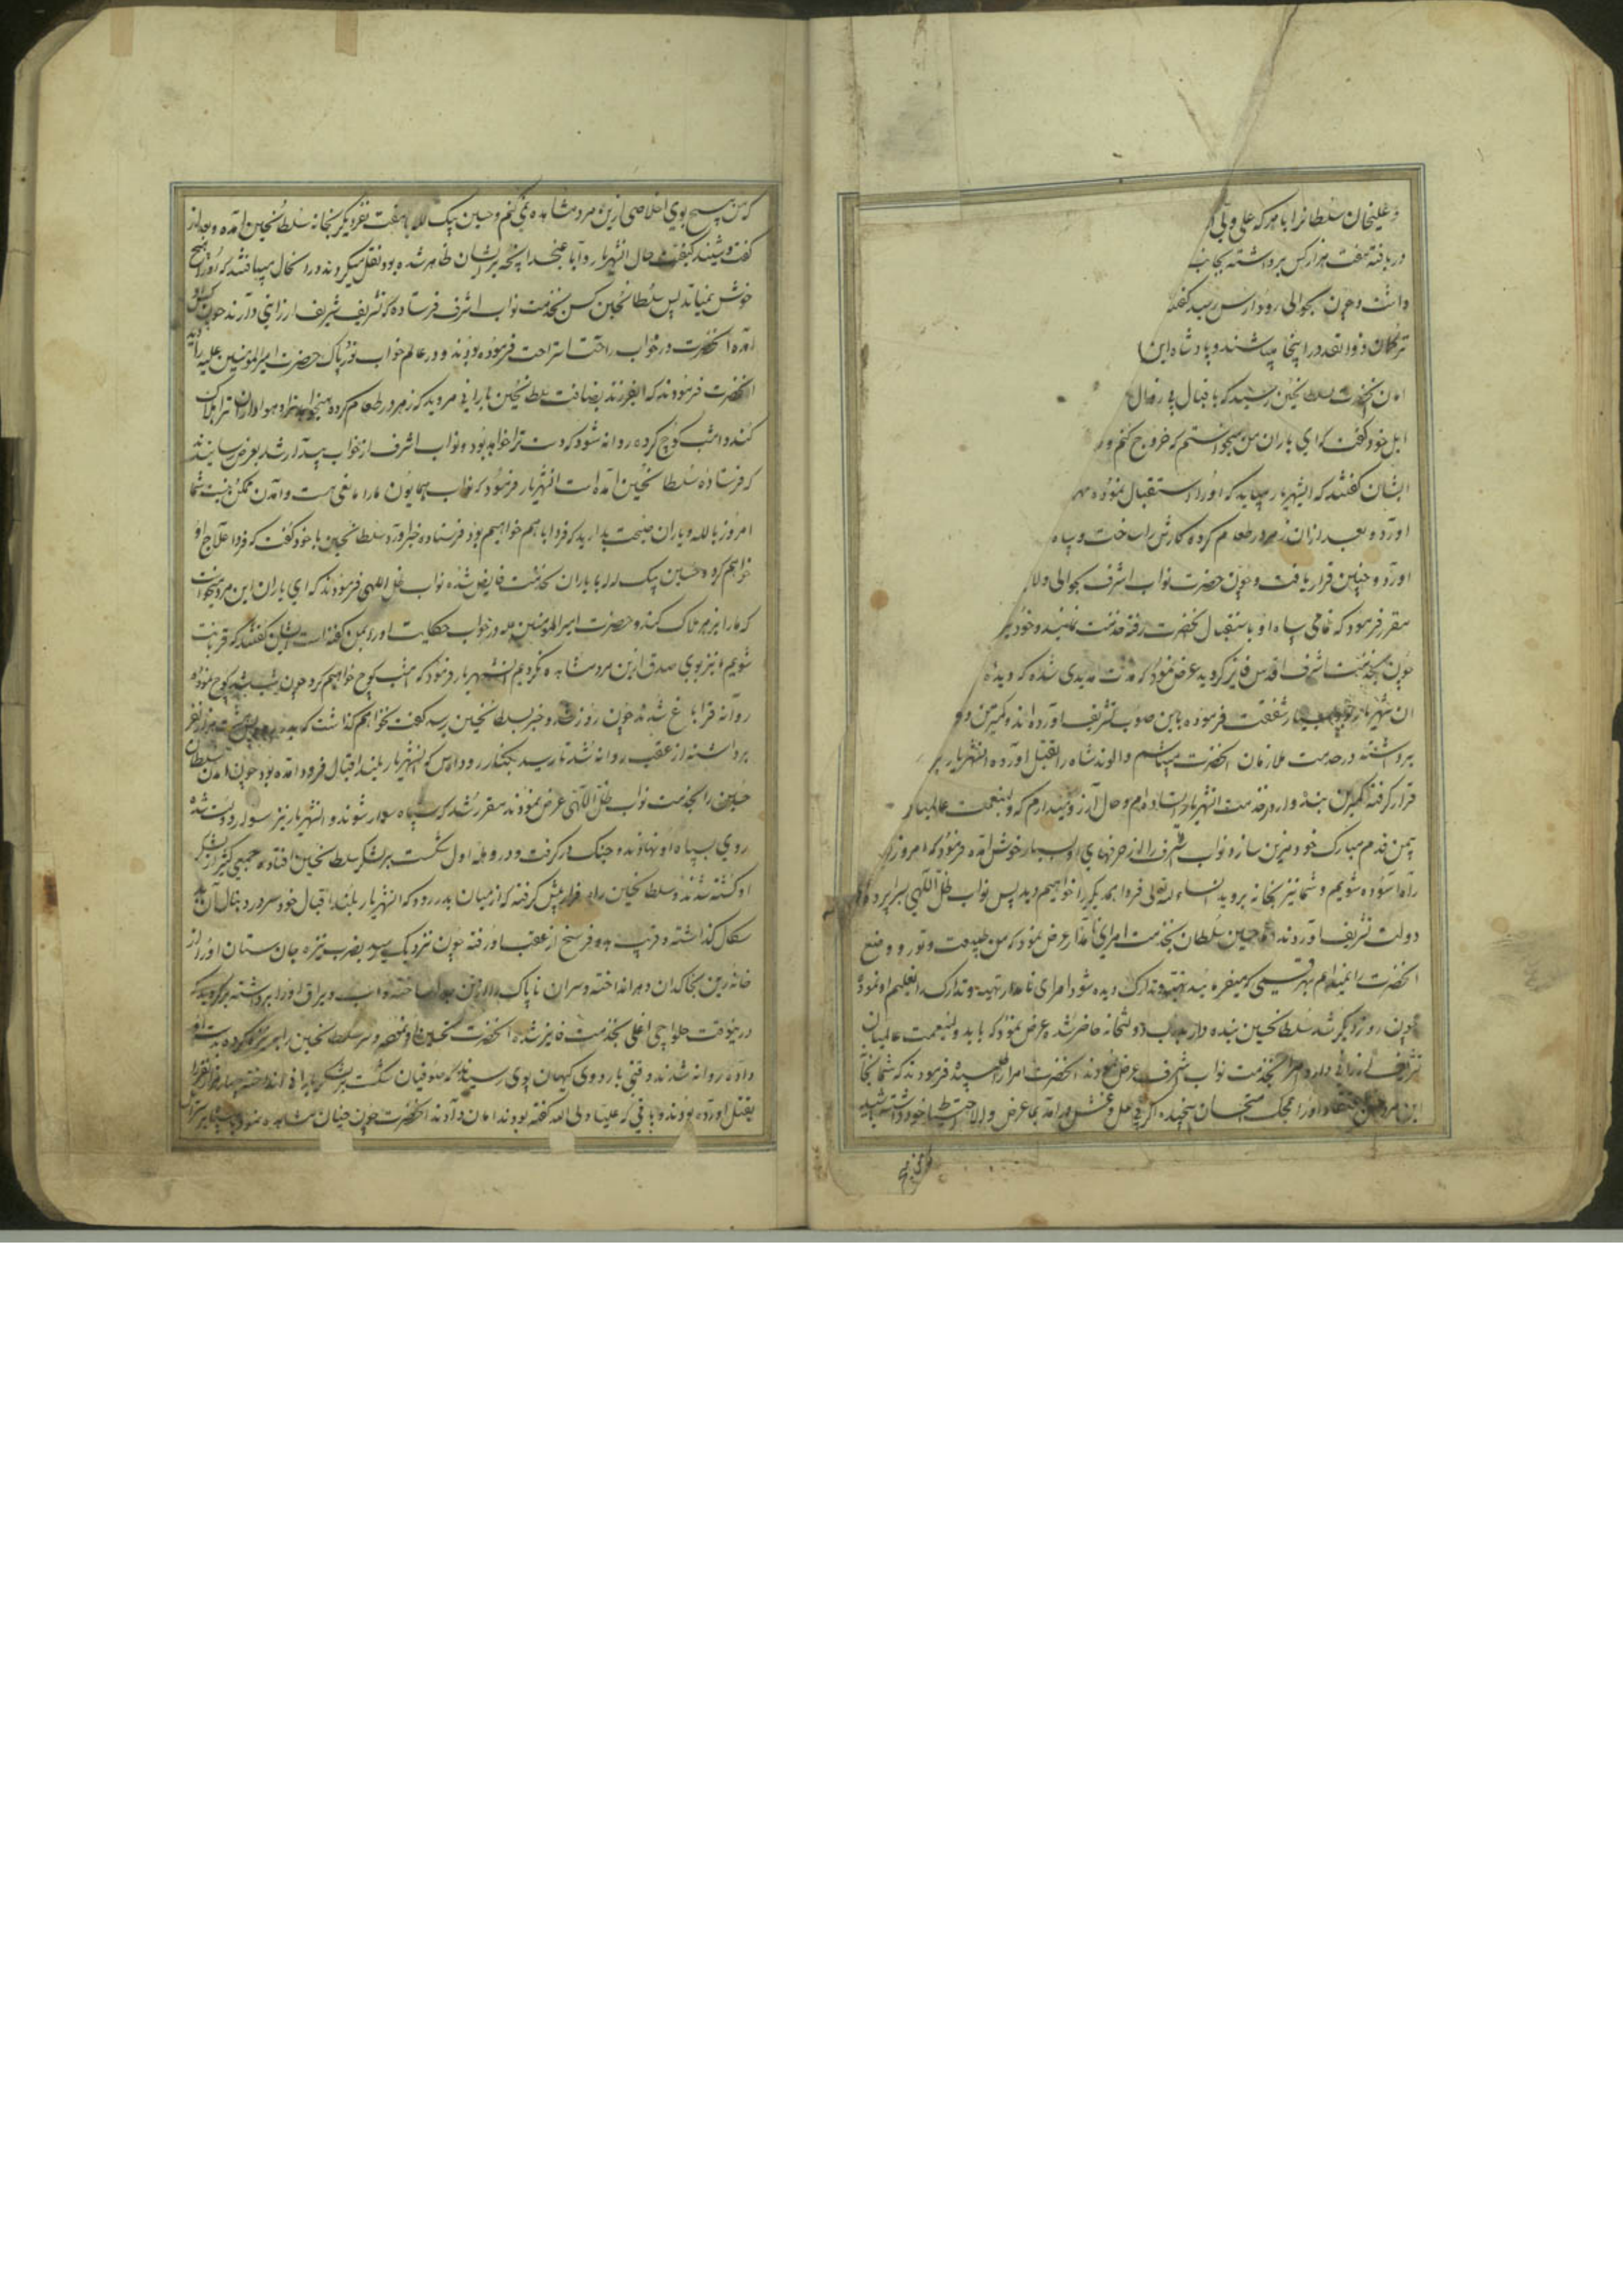 و علیخان سلطانرا با هر که علی ولی
دریافته هفت هزار کس برداشته بجانب
داشت و چون بحوالی رودارس رسید گفتند
ترکمان ذوالقدر در اینجا میباشند و پادشاه این
سلطانحسین رسید که با قبال بی زوال
اهل خود گفت که ای یاران من میخواستم که خروج کنم و
ایشان گفتند که اینشهریار میاید که او را استقبال نموده
آورده بعد از آن زهر در طعام کرده کارش را ساخت و سپاه
او و چنین قرار یافت و چون حضرت نواب اشرف بحوالی
مقرر فرمود که تمامی سپاه او باستقبال آنحضرت رفته خدمت نمایند و خود نیز
چون بخدمت اشرف اقدس فایز گردید عرض نمود که مدت مدیدی شده که دیده
آن شهریار شفقت فرموده باین صوب تشریف آورده‌اند و کمترین
برداشته در خدمت ملازمان آنحضرت میباشم و الوند شاه را بقتل آورده آنشهریار بر
قرار گرفته کمترین بنده‌وار در خدمت آنشهریار ایستاده‌ام و حال آرزومندارم که ولینعمت عالمیان
بیمن قدم مبارک خود مزین سازد نواب اشرف را از حرفهای او بسیار خوش آمده فرمود که امروز از
راه آسوده شویم و شما نیز بخانه بروید انشاءالله تعالی فردا همدیگر را خواهیم دید پس نواب ظل اللهی بسراپرده
دولت تشریف آوردند و حسین سلطان بخدمت امرای نامدار عرض نمود که من طبیعت و تورو وضع
آنحضرت را نمیدانم بهر قسمی که میفرمائید تهیه و تدارک دیده شود امرای نامدار تهیه و تدارک را تعلیم او نمود
چون روز دیگر شد سلطانحسین بنده‌وار بدر دولتخانه حاضر شد و عرض نمود که باید ولینعمت عالمیان
تشریف ارزانی دارد امرا بخدمت نواب اشرف عرض نمودند آنحضرت امرا را طلبیده فرمودند که شما بخانه
این مرد او را بمحک امتحان سنجیده اگر بی غل و غش برآمد بما عرض و الا احتیاط خود داشته باشید
که من هیچ بوی اخلاصی ازین مرد مشاهده نمیکنم و حسین بیک لله با هفت نفر دیگر بخانه سلطانحسین آمده و بعد از
گفت و شنید کیفیت حال آنشهریار و آباء عنجد آنچه بریشان ظاهر شده بود نقل میکردند و در آنحال میافتند که او را هیچ
خوش نمیاید پس سلطانحسین کس بخدمت نواب اشرف فرستاده که تشریف شریف ارزانی دارند چون کس او
آمده آنحضرت در خواب راحت استراحت فرموده بودند و در عالم خواب نور پاک حضرت امیرالمومنین علیه را دید
آنحضرت فرمودند که ایفرزند بضیافت سلطانحسین بارانی مروید که زهر در طعام کرده میخواهد ترا و هواداران ترا هلاک
کند و امشب کوچ کرده روانه شود که دست ترا خواهد بود و نواب اشرف از خواب بیدار شد بعرض رسانیدند
که فرستاده سلطانحسین آمده است آنشهریار فرمود که نواب همایون ما را مانعی هست و آمدن ممکن نیست شما
امروز با لله و یاران صحبت بدارید که فردا با هم خواهیم بود فرستاده خبر آورد سلطانحسین با خود گفت که فردا علاج او
خواهم کرد و حسین بیک لله با یاران بخدمت فایض شده نواب ظل اللهی فرمودند که ای یاران این مرد میخواست
که ما را بزهر هلاک کند و حضرت امیرالمومنین در خواب حکایت او را بمن گفته است ایشان گفتند که قربانت
شویم ما نیز بوی صدق ازین مرد مشاهده نکردیم آنشهریار فرمود که امشب کوچ خواهیم کرد چون شب شد کوچ نموده
روانه قراباغ شدند چون روز شد و خبر بسلطانحسین رسید گفت نخواهم گذاشت که هزار نفر
برداشته از عقب روانه شد تا رسید بکنار رودارس که آنشهریار بلند اقبال فرود آمده بود چون آمدن سلطان
حسین را بخدمت نواب ظل اللهی عرض نمودند مقرر شد که سپاه سوار شوند و آنشهریار نیز سوار دولت شده
روی بسپاه او نهادند و جنگ در گرفت و در وهله اول شکست بر لشکر سلطانحسین افتاده جمعی کثیر از لشکر
او کشته شدند و سلطانحسین راه فرار پیش گرفته که از میان بدر رود که آنشهریار بلند اقبال خود سر در دنبال آن
سکال گذاشته و قریب بدو فرسخ از عقب او رفته چون نزدیک رسید بضرب نیزه جان ستان او را از
خانه زین بخاکدان دهر انداخته و سر آن ناپاک را از بدن جدا ساخته و اسب و یراق او را برداشته
درینوقت حلواچی اغلی بخدمت فایز شده آنحضرت تحسین او نموده سر سلطانحسین را بدست او
داده روانه شدند وقتی باردوی کیهان پوی رسیدند که صوفیان شکست بر لشکر بارانی انداخته چهار هزار نفر را
بقتل آورده بودند و باقی که علیا ولی الله گفته بودند امان دادند آنحضرت چون چنان مشاهده نمود